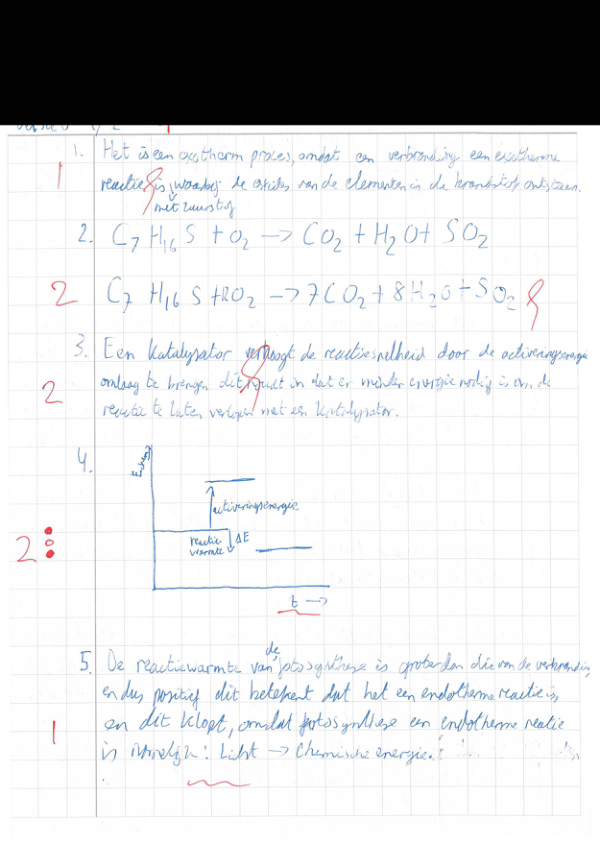 1. Het is een exotherm proces, omdat een verbranding een exotherme
1 reactie is, waarbij de oxides van de elementen in de brandstof ontstaan.
met zuurstof
2. C7 H16 S + O2 -> CO2 + H2O + SO2
2 C7 H16 S + 12O2 -> 7CO2 + 8H2O + SO2
3. Een katalysator verhoogt de reactiesnelheid door de activeringsenergie
2 omlaag te brengen dit houdt in dat er minder energie nodig is om de
reactie te laten verlopen met een katalysator.
4.
Energie
activeringsenergie
2 reactie ΔE
warmte
t ->
de
5. De reactiewarmte van fotosynthese is groter dan die van de verbranding
en dus positief dit betekent dat het een endotherme reactie is,
1 en dit klopt, omdat fotosynthese een endotherme reatie
is namelijk: Licht -> Chemische energie.